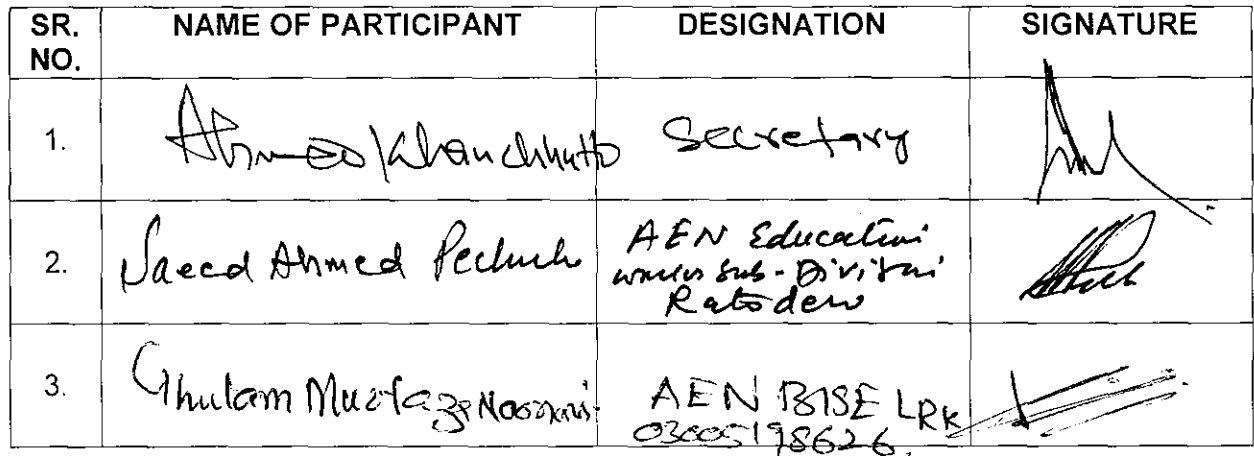 SR. NO.
NAME OF PARTICIPANT
DESIGNATION
SIGNATURE
1.
Ahmed Khan Chhutto
Secretary
2.
Saeed Ahmed
AEN Education
works Sub-Division
Ratodero
3.
Ghulam Murtaza Noonari
AEN BISE LRK
03005198626